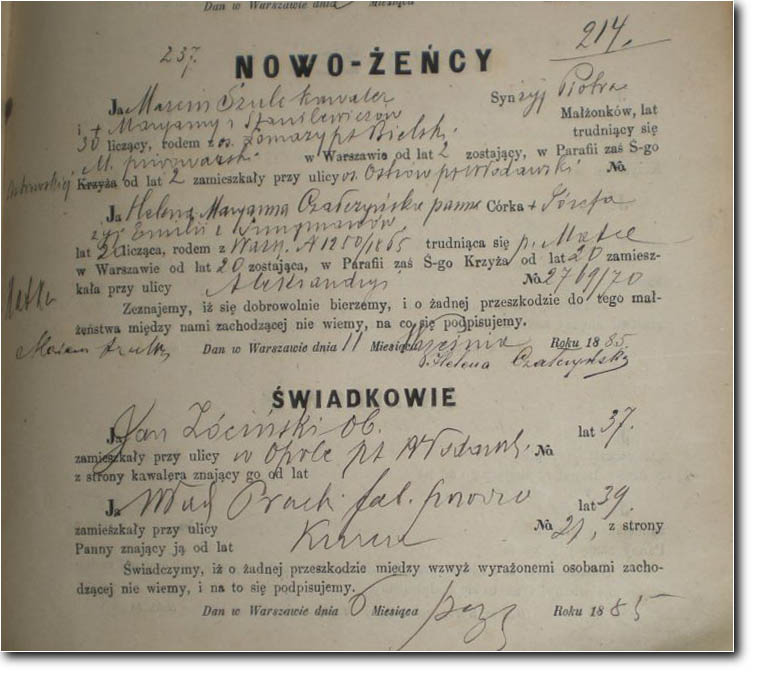 Dan w Warszawie dnia Miesiąca
237.
214.
NOWO-ŻEŃCY
Ja Marcin Szulc kawaler Syn żyj Piotra
i + Maryanny z Stanilewiczów Małżonków, lat
30 liczący, rodem z os. Łomazy pt Bielski trudniący się
M. w Warszawie od lat 2 zostający, w Parafii zaś Ś-go
Krzyża od lat 2 zamieszkały przy ulicy os. Ostrów pt Włodawski No
Ja Helena Maryanna Czałczyńska panna Córka + Józefa
żyj Emilii z
lat 20 licząca, rodem z Warsz. N 1250/1865 trudniąca się p. Matce
w Warszawie od lat 20 zostająca, w Parafii zaś Ś-go Krzyża od lat 20 zamiesz-
kała przy ulicy Aleksandryi No 2769/70
Zeznajemy, iż się dobrowolnie bierzemy, i o żadnej przeszkodzie do tego mał-
żeństwa między nami zachodzącej nie wiemy, na co się podpisujemy.
Dan w Warszawie dnia 11 Miesiąca Września Roku 1885.
Helena Czałczyńska
ŚWIADKOWIE
Ja Jan Ob. lat 37.
zamieszkały przy ulicy w Opole pt Włodawsk. No
z strony kawalera znający go od lat
Ja Wład lat 39.
zamieszkały przy ulicy No 21, z strony
Panny znający ją od lat
Świadczymy, iż o żadnej przeszkodzie między wzwyż wyrażonemi osobami zacho-
dzącej nie wiemy, i na to się podpisujemy.
Dan w Warszawie dnia 6 Miesiąca Roku 1885